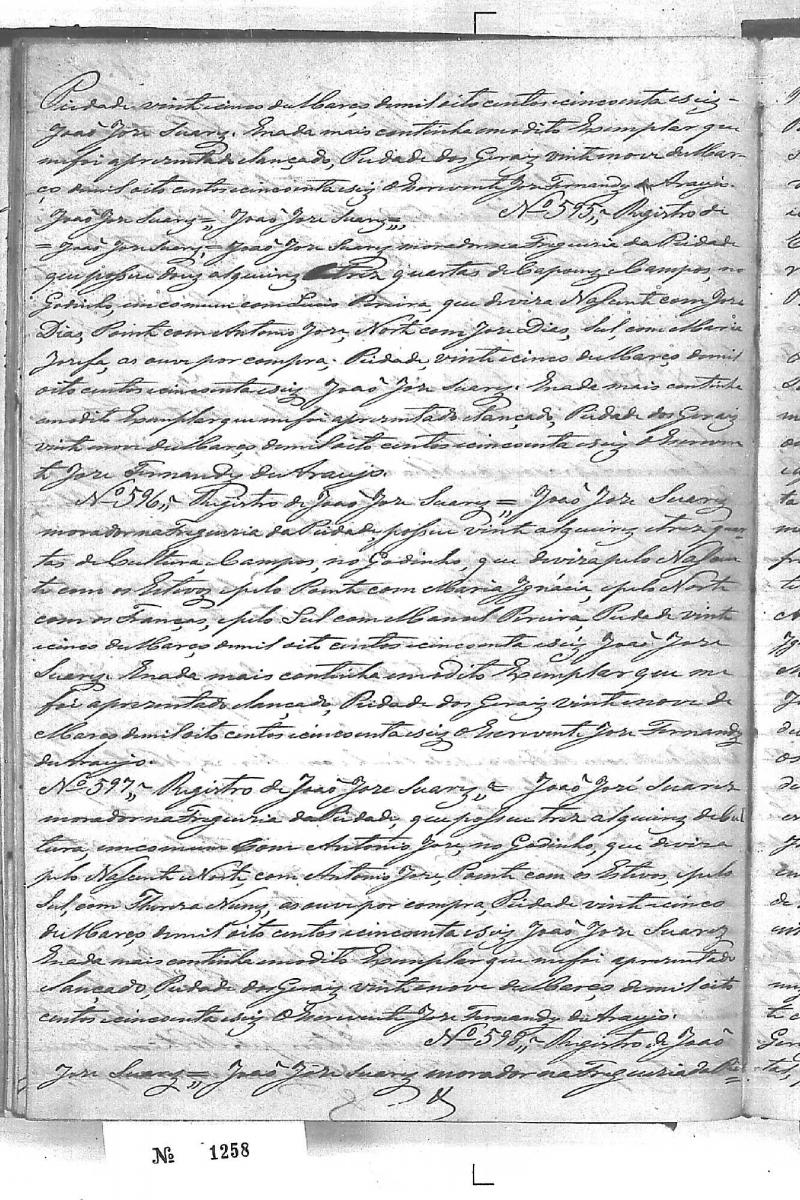 Piedade vinte cinco de Março de mil oito centos e cincoenta e seiz =
João Joze Suarez. E nada mais continha em o dito Exemplar que
me foi aprezentado e lançado, Piedade dos Geraiz vinte nove de Mar-
ço de mil oito centos e cincoenta e seiz O Escrevente Joze Fernandz de Araujo.
João Joze Suarez =,, João Joze Suarez =,, Nº 595,, = Registro de
= João Joze Suarez,= João Joze Suarez morador na Freguezia da Piedade
que possue doiz alqueirez e trez quartas de Capoens e Campos, no
Godinho, em comum com Luis Pereira, que deviza Nascente com Joze
Dias, Poente com Antonio Joze, Norte com Joze Dias, Sul, com Maria
Jozefa, as ouve por compra, Piedade, vinte cinco de Março de mil
oito centos e cincoenta e seiz João Joze Suarez. E nada mais continha
em o dito Exemplar que me foi aprezentado e lançado, Piedade dos Geraiz
vinte nove de Março de mil oito centos e cincoenta e seiz O Escreven-
te Joze Fernandz de Araujo.
Nº 596,, = Registro de João Joze Suarez =,, João Joze Suarez
morador na Freguezia da Piedade, possue vinte alqueirez e trez quar-
tas de Cultura e Campos, no Godinho, que deviza pelo Nascen-
te com os Estevoz e pelo Poente com Maria Ignácia, e pelo Norte
com os Francas, e pelo Sul com Manoel Pereira, Piedade vinte
e cinco de Março de mil oito centos e cincoenta e seiz João Joze
Suarez. E nada mais continha em o dito Exemplar que me
foi aprezentado e lançado, Piedade dos Geraiz vinte e nove de
Março de mil oito centos e cincoenta e seiz O Escrevente Joze Fernandz
de Araujo.
Nº 597,, = Registro de João Joze Suarez,, = João José Suarez
morador na Freguezia da Piedade, que possue trez alqueirez de Cul-
tura, em comum com Antonio Joze, no Godinho, que deviza
pelo Nascente e Norte, com Antonio Joze, Poente com os Estevoz, e pelo
Sul, com Thereza Nunz, as ouve por compra, Piedade vinte cinco
de Março de mil oito centos e cincoenta e seiz João Joze Suarez
E nada mais continha em o dito Exemplar que me foi aprezentado
e lançado, Piedade dos Geraiz vinte nove de Março de mil oito
centos e cincoenta e seiz O Escrevente Joze Fernandz de Araujo.
Nº 598,, = Registro de João
Joze Suarez =,, João Joze Suarez morador na Freguezia da Pie-
Nº 1258